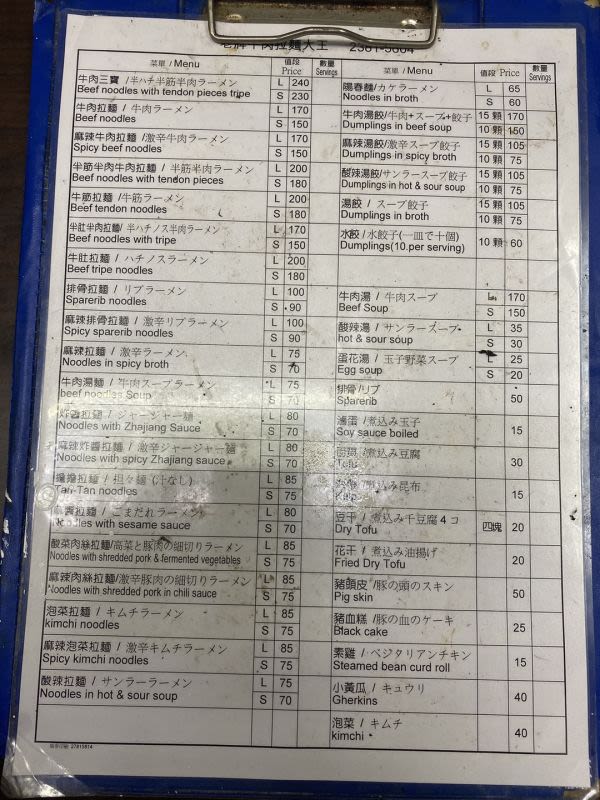 牛肉拉麵大王 2381-5604
菜單 / Menu 價段 Price 數量 Servings
牛肉三寶 / 半ハチ半筋半肉ラーメン L 240
Beef noodles with tendon pieces tripe S 230
牛肉拉麵 / 牛肉ラーメン L 170
Beef noodles S 150
麻辣牛肉拉麵 / 激辛牛肉ラーメン L 170
Spicy beef noodles S 150
半筋半肉牛肉拉麵 / 半筋半肉ラーメン L 200
Beef noodles with tendon pieces S 180
牛筋拉麵 / 牛筋ラーメン L 200
Beef tendon noodles S 180
半肚半肉拉麵 / 半ハチノス半肉ラーメン L 170
Beef noodles with tripe S 150
牛肚拉麵 / ハチノスラーメン L 200
Beef tripe noodles S 180
排骨拉麵 / リブラーメン L 100
Sparerib noodles S 90
麻辣排骨拉麵 / 激辛リブラーメン L 100
Spicy sparerib noodles S 90
麻辣拉麵 / 激辛ラーメン L 75
Noodles in spicy broth S 70
牛肉湯麵 / 牛肉スープラーメン L 75
beef noodles Soup S 70
炸醬拉麵 / ジャージャー麺 L 80
Noodles with Zhajiang Sauce S 70
麻辣炸醬拉麵 / 激辛ジャージャー麺 L 80
Noodles with spicy Zhajiang sauce S 70
擔擔拉麵 / 担々麺 (汁なし) L 85
Tan-Tan noodles S 75
麻醬拉麵 / ごまだれラーメン L 80
Noodles with sesame sauce S 70
酸菜肉絲拉麵/高菜と豚肉の細切りラーメン L 85
Noodles with shredded pork & fermented vegetables S 75
麻辣肉絲拉麵/激辛豚肉の細切りラーメン L 85
Noodles with shredded pork in chili sauce S 75
泡菜拉麵 / キムチラーメン L 85
kimchi noodles S 75
麻辣泡菜拉麵 / 激辛キムチラーメン L 85
Spicy kimchi noodles S 75
酸辣拉麵 / サンラーラーメン L 75
Noodles in hot & sour soup S 70
菜單 / Menu 值段 Price 數量 Servings
陽春麵/カケラーメン L 65
Noodles in broth S 60
牛肉湯餃/牛肉+スープ+餃子 15 顆 170
Dumplings in beef soup 10 顆 150
麻辣湯餃/激辛スープ餃子 15 顆 105
Dumplings in spicy broth 10 顆 75
酸辣湯餃/サンラースープ餃子 15 顆 105
Dumplings in hot & sour soup 10 顆 75
湯餃 / スープ餃子 15 顆 105
Dumplings in broth 10 顆 75
水餃 /水餃子(一皿で十個) 10 顆 60
Dumplings(10.per serving)
牛肉湯 / 牛肉スープ L 170
Beef Soup S 150
酸辣湯 / サンラースープ L 35
hot & sour soup S 30
蛋花湯 / 玉子野菜スープ L 25
Egg soup S 20
排骨/リブ 50
Sparerib
滷蛋 /煮込み玉子 15
Soy sauce boiled
煮込み豆腐 30
Tofu
煮込み昆布 15
豆干 / 煮込み干豆腐4コ 四塊 20
Dry Tofu
花干 / 煮込み油揚げ 20
Fried Dry Tofu
豬頭皮 /豚の頭のスキン 50
Pig skin
豬血糕 /豚の血のケーキ 25
Black cake
素雞 / ベジタリアンチキン 15
Steamed bean curd roll
小黃瓜 / キュウリ 40
Gherkins
泡菜 / キムチ 40
kimchi
27815814